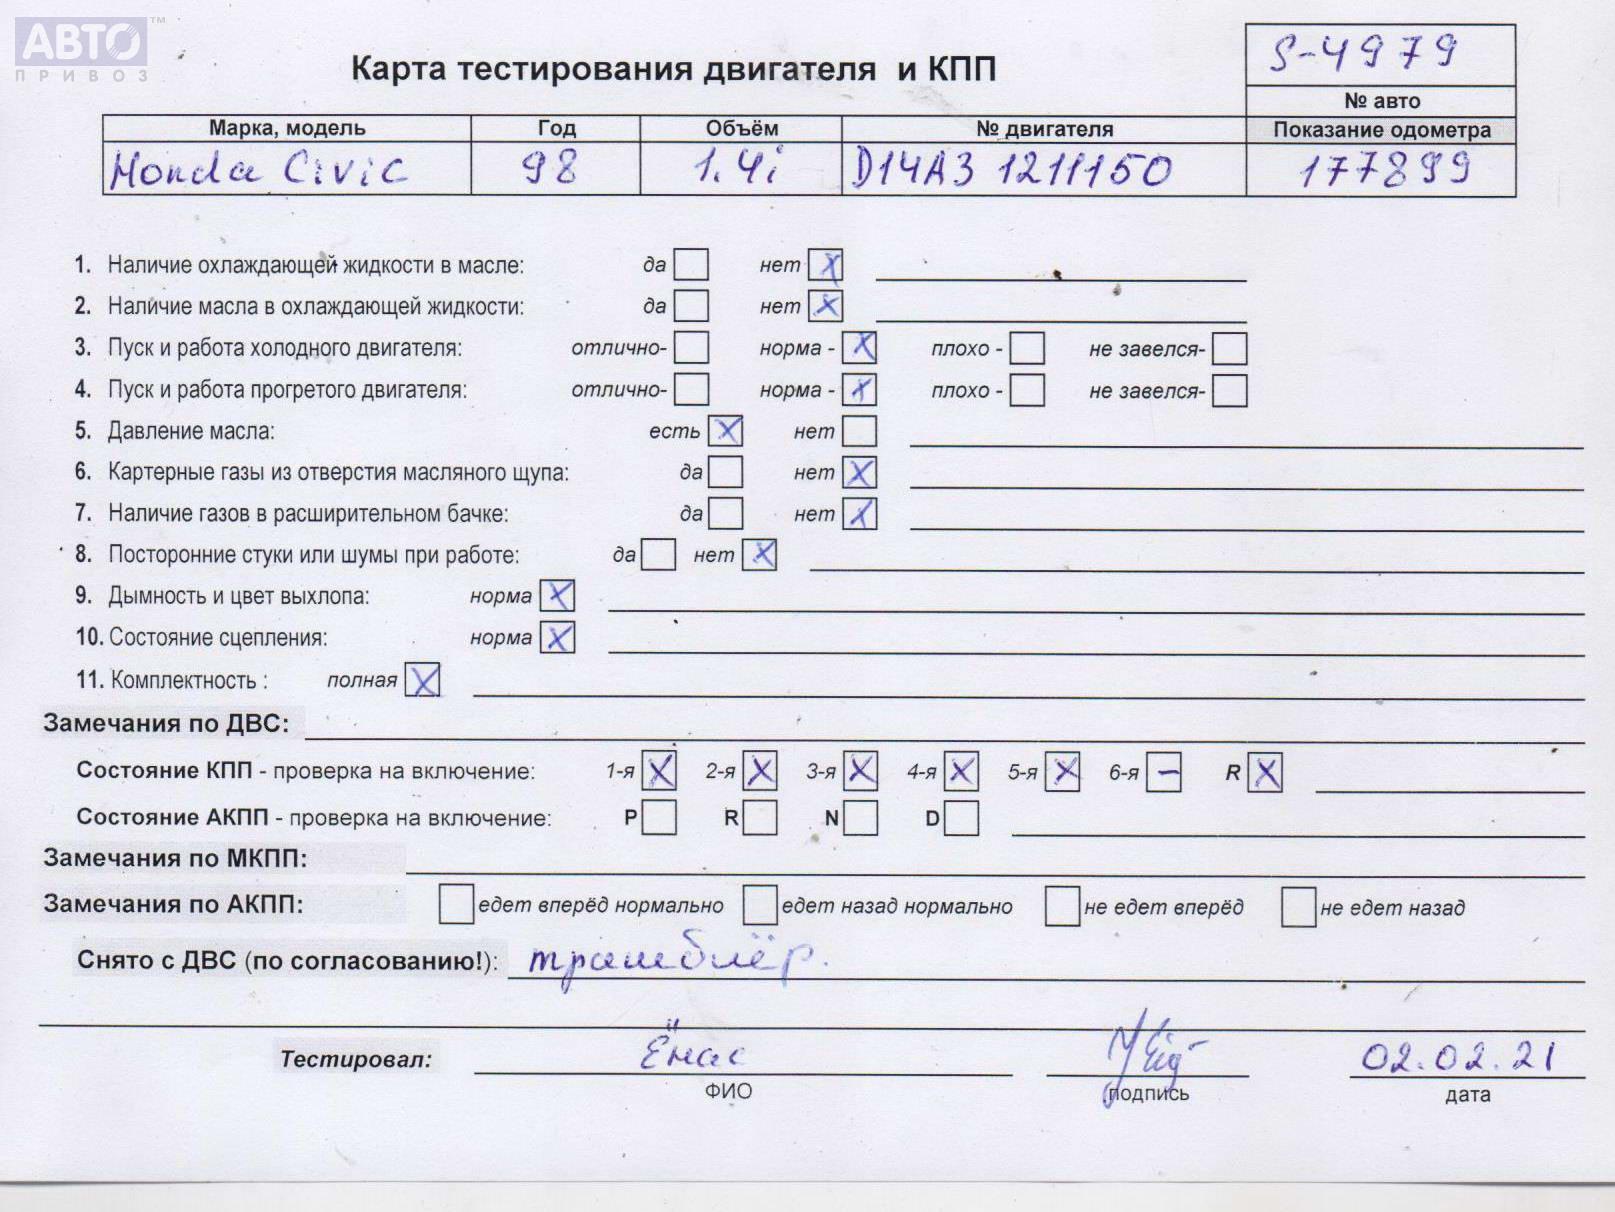 АВТО ™
ПРИВОЗ
S-4979
Карта тестирования двигателя и КПП
№ авто
Марка, модель Год Объём № двигателя Показание одометра
Honda Civic 98 1.4i D14A3 1211150 177899
1. Наличие охлаждающей жидкости в масле: да нет X
2. Наличие масла в охлаждающей жидкости: да нет X
3. Пуск и работа холодного двигателя: отлично- норма - X плохо - не завелся-
4. Пуск и работа прогретого двигателя: отлично- норма - X плохо - не завелся-
5. Давление масла: есть X нет
6. Картерные газы из отверстия масляного щупа: да нет X
7. Наличие газов в расширительном бачке: да нет X
8. Посторонние стуки или шумы при работе: да нет X
9. Дымность и цвет выхлопа: норма X
10. Состояние сцепления: норма X
11. Комплектность : полная X
Замечания по ДВС:
Состояние КПП - проверка на включение: 1-я X 2-я X 3-я X 4-я X 5-я X 6-я – R X
Состояние АКПП - проверка на включение: P R N D
Замечания по МКПП:
Замечания по АКПП: едет вперёд нормально едет назад нормально не едет вперёд не едет назад
Снято с ДВС (по согласованию!): трамблёр.
Тестировал: Ёнас 02.02.21
ФИО подпись дата